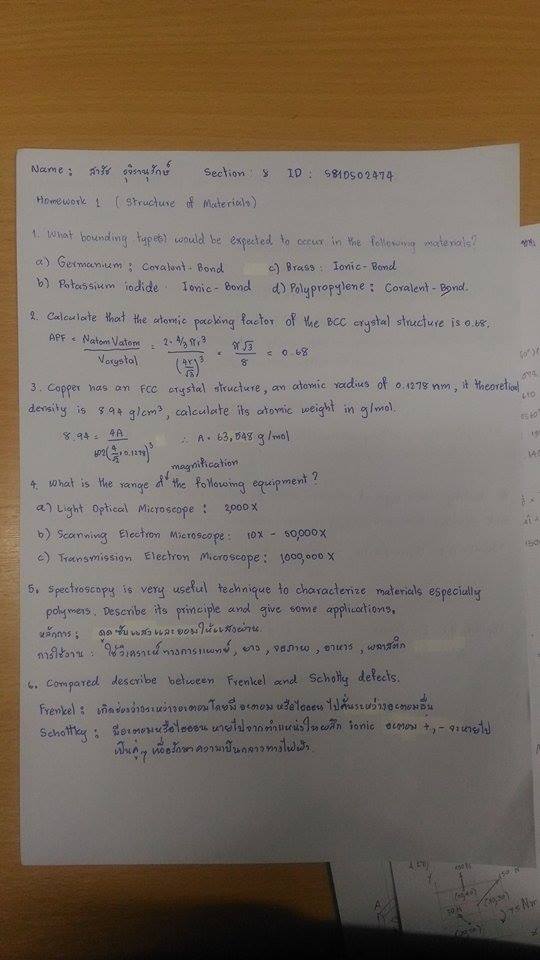 Name : สารัช รุจิรานุรักษ์ Section : 8 ID : 5810502474
Homework 1 ( Structure of Materials)
1. What bounding type(s) would be expected to occur in the following materials?
a) Germanium : Covalent-Bond c) Brass : Ionic-Bond
b) Potassium iodide : Ionic-Bond d) Polypropylene : Covalent-Bond.
2. Calculate that the atomic packing factor of the BCC crystal structure is 0.68.
APF = Natom Vatom / Vcrystal = 2·4/3 πr³ / (4r/√3)³ = π√3 / 8 = 0.68
3. Copper has an FCC crystal structure, an atomic radius of 0.1278 nm, it theoretical
density is 8.94 g/cm³, calculate its atomic weight in g/mol.
8.94 = 4A / 602(4/√2 × 0.1278)³ ∴ A = 63,548 g/mol
magnification
4. What is the range of the following equipment?
a) Light Optical Microscope : 2,000 X
b) Scanning Electron Microscope : 10X - 50,000X
c) Transmission Electron Microscope : 1,000,000 X
5. Spectroscopy is very useful technique to characterize materials especially
polymers. Describe its principle and give some applications.
หลักการ : ดูดซับแสงและยอมให้แสงผ่าน
การใช้งาน : ใช้วิเคราะห์ทางการแพทย์ , ยาง , จอภาพ , อาหาร , พลาสติก
6. Compared describe between Frenkel and Schotty defects.
Frenkel : เกิดช่องว่างระหว่างอะตอมโดยมี อะตอม หรือไอออน ไปคั่นระหว่างอะตอมอื่น
Schottky : มีอะตอมหรือไอออน หายไปจากตำแหน่งในผลึก ionic อะตอม +,- จะหายไป
เป็นคู่ๆ เพื่อรักษาความเป็นกลางทางไฟฟ้า